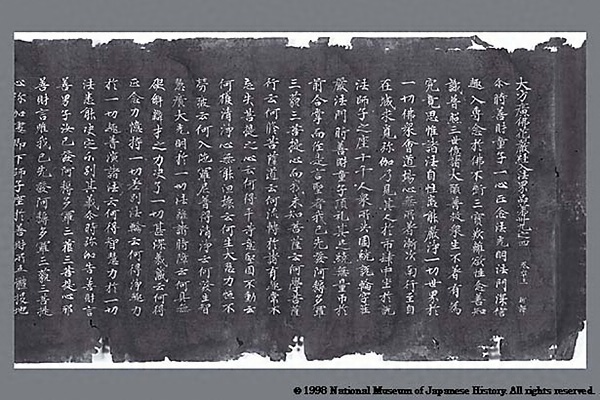 大方廣佛花嚴經入法界品第卅四
尒時善財童子一心正念法光明法門深信
趣入專念於佛不斷三寶歎離欲性念善知
識普照三世憶諸大願普救衆生不著有爲
究竟思惟諸法自性悉能嚴淨一切世界於
一切佛衆會道場心無所著漸次南行至自
在城求覓弥伽乃見其人在市肆中坐於說
法師子之座十千人衆所共圍繞說輪字莊
嚴法門時善財童子頂礼其足繞無量帀於
前合掌而住作是言聖者我已先發阿耨多羅
三藐三菩提心而我未知菩薩云何學菩薩
行云何修菩薩道云何流轉於諸有趣常不
忘失菩提之心云何得平等意堅固不動云
何獲清淨心無能沮壞云何生大悲力恒不
勞疲云何入陁羅尼普得清淨云何發生智
慧廣大光明於一切法離諸暗障云何具無
礙解辯才之力決了一切甚深義藏云何得
正念力憶持一切差別法輪云何得淨趣力
於一切趣普演諸法云何得智慧力於一切
法悉能決定分別其義尒時弥伽告善財言
善男子汝已發阿耨多羅三藐三菩提心耶
善財言唯我已先發阿耨多羅三藐三菩提
心弥伽遽即下師子座於善財所五體投地
© 1998 National Museum of Japanese History. All rights reserved.